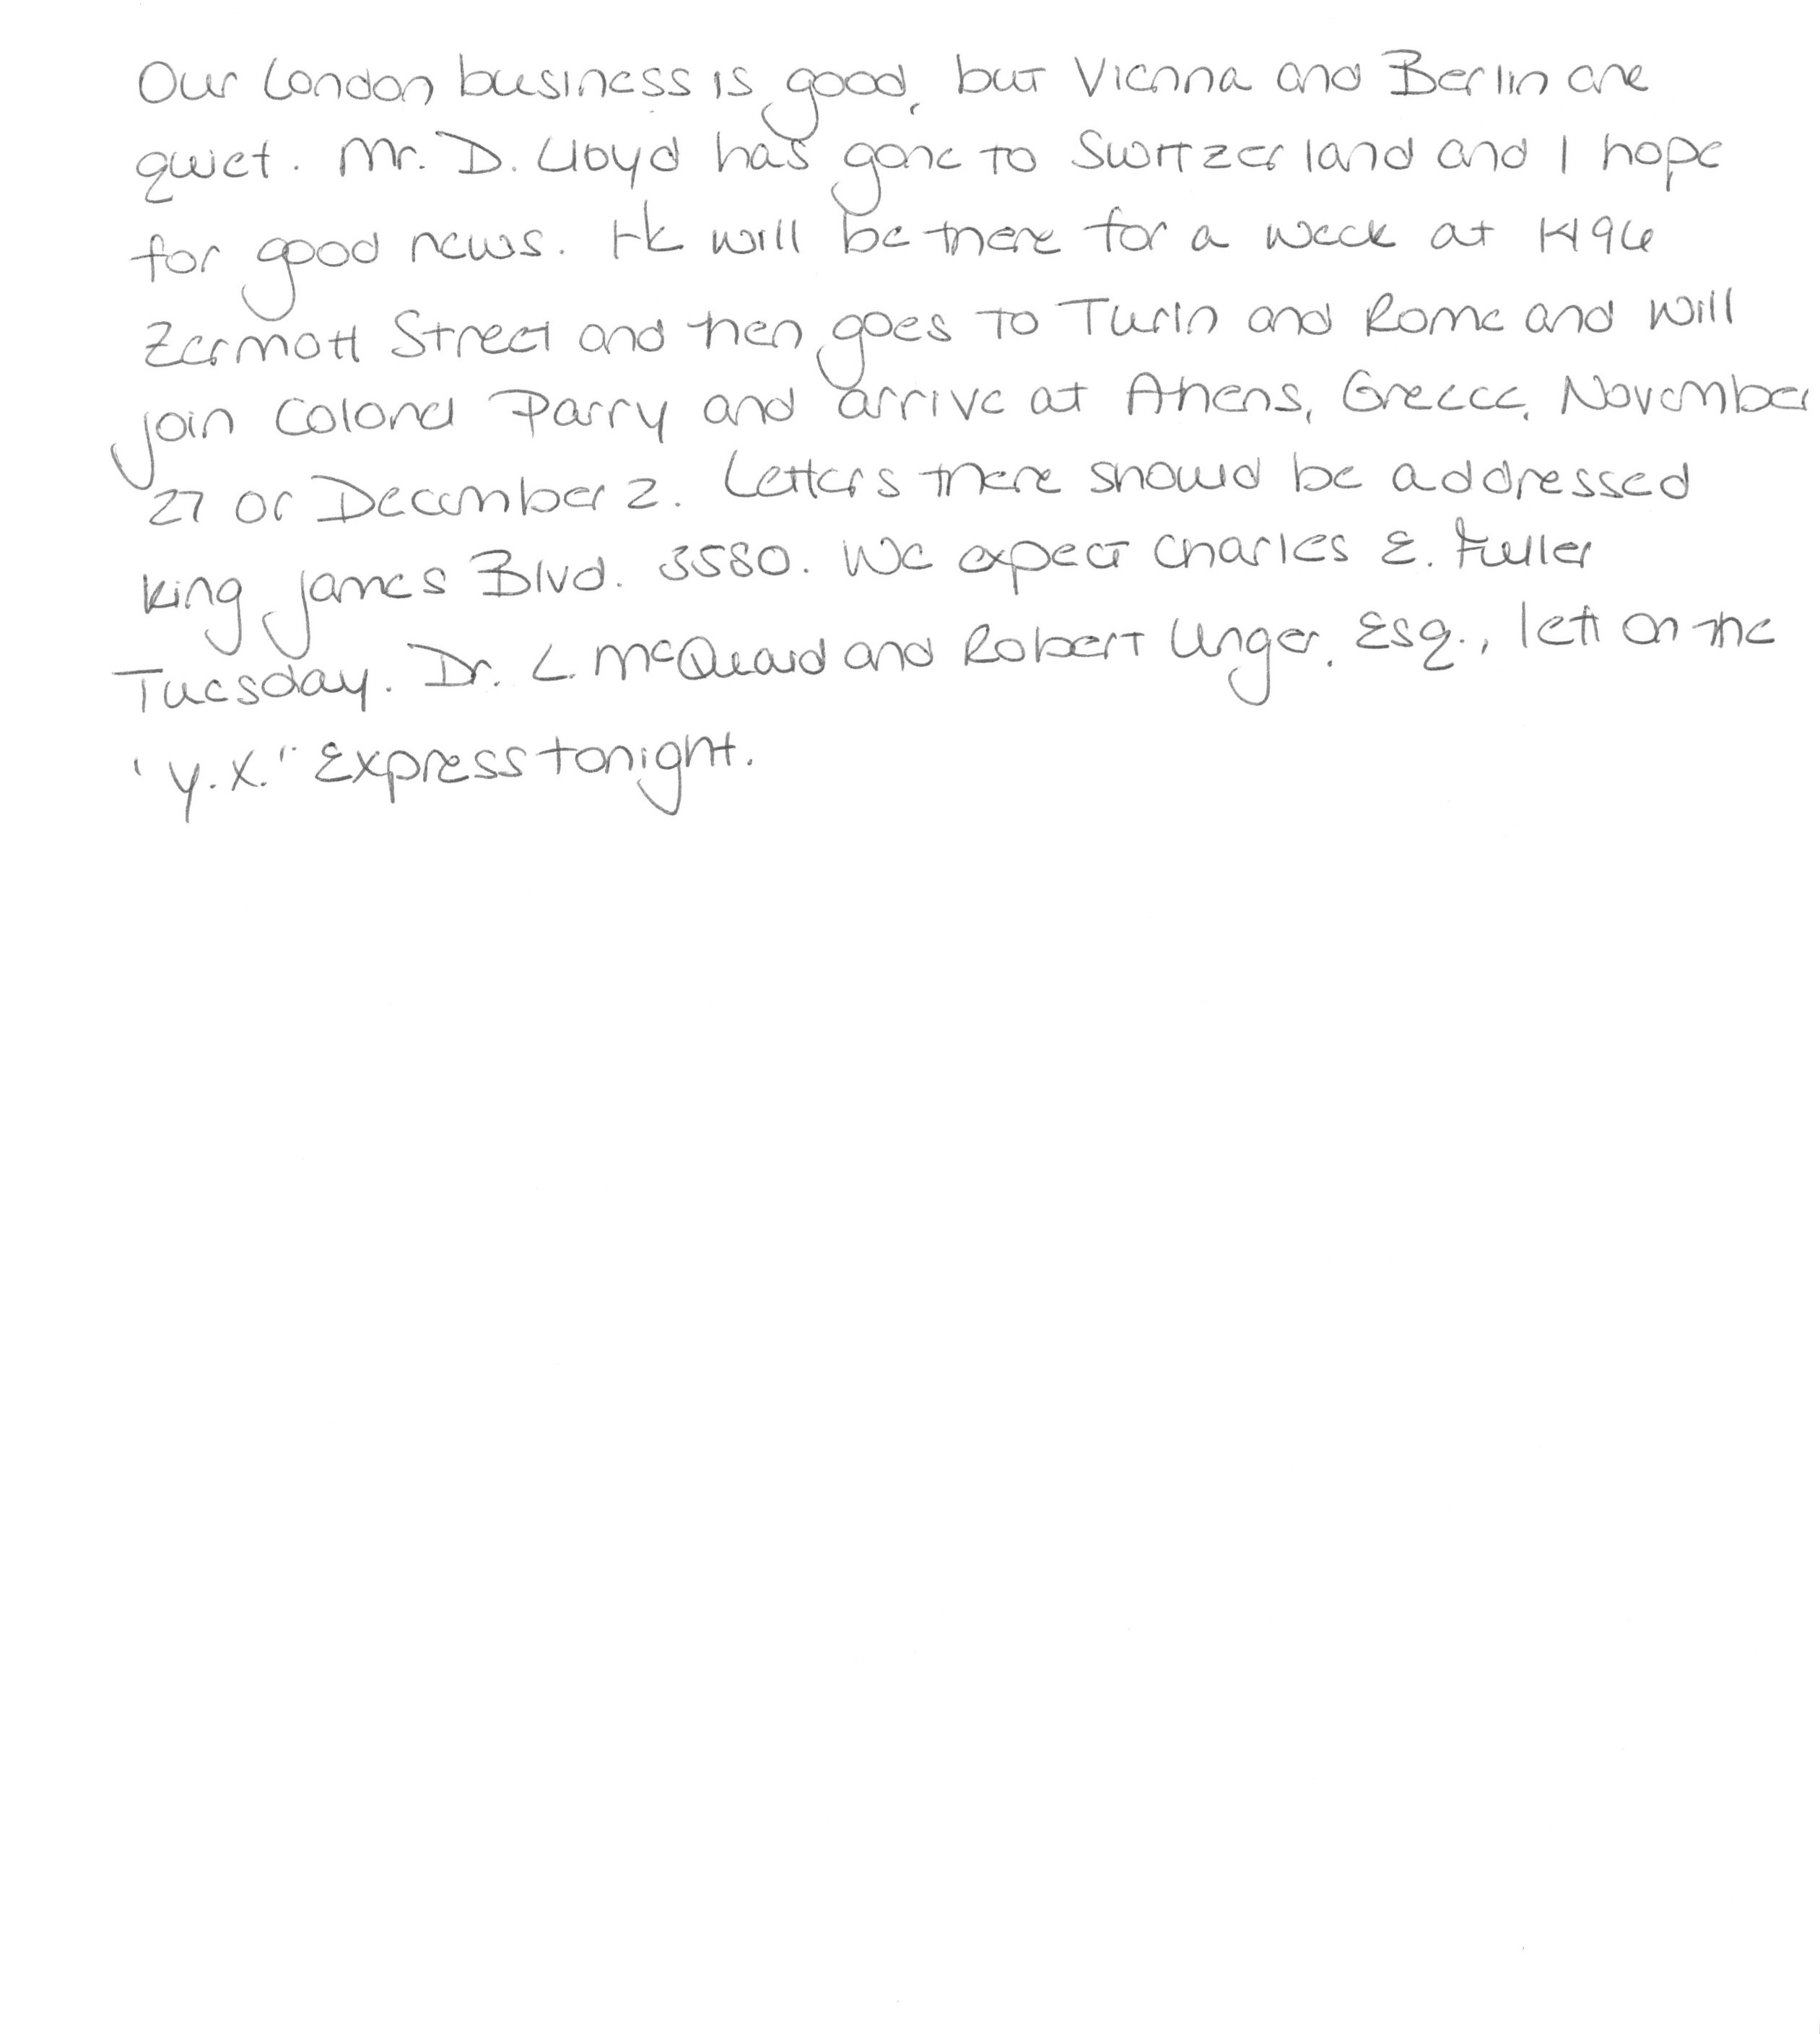 Our London business is good, but Vienna and Berlin are
quiet. Mr. D. Lloyd has gone to Switzerland and I hope
for good news. He will be there for a week at 1496
Zermott Street and then goes to Turin and Rome and will
join Colonel Parry and arrive at Athens, Greece, November
27 or December 2. Letters there should be addressed
King James Blvd. 3580. We expect Charles E. Fuller
Tuesday. Dr. L. McQuaid and Robert Unger, Esq., left on the
"Y.X." Express tonight.